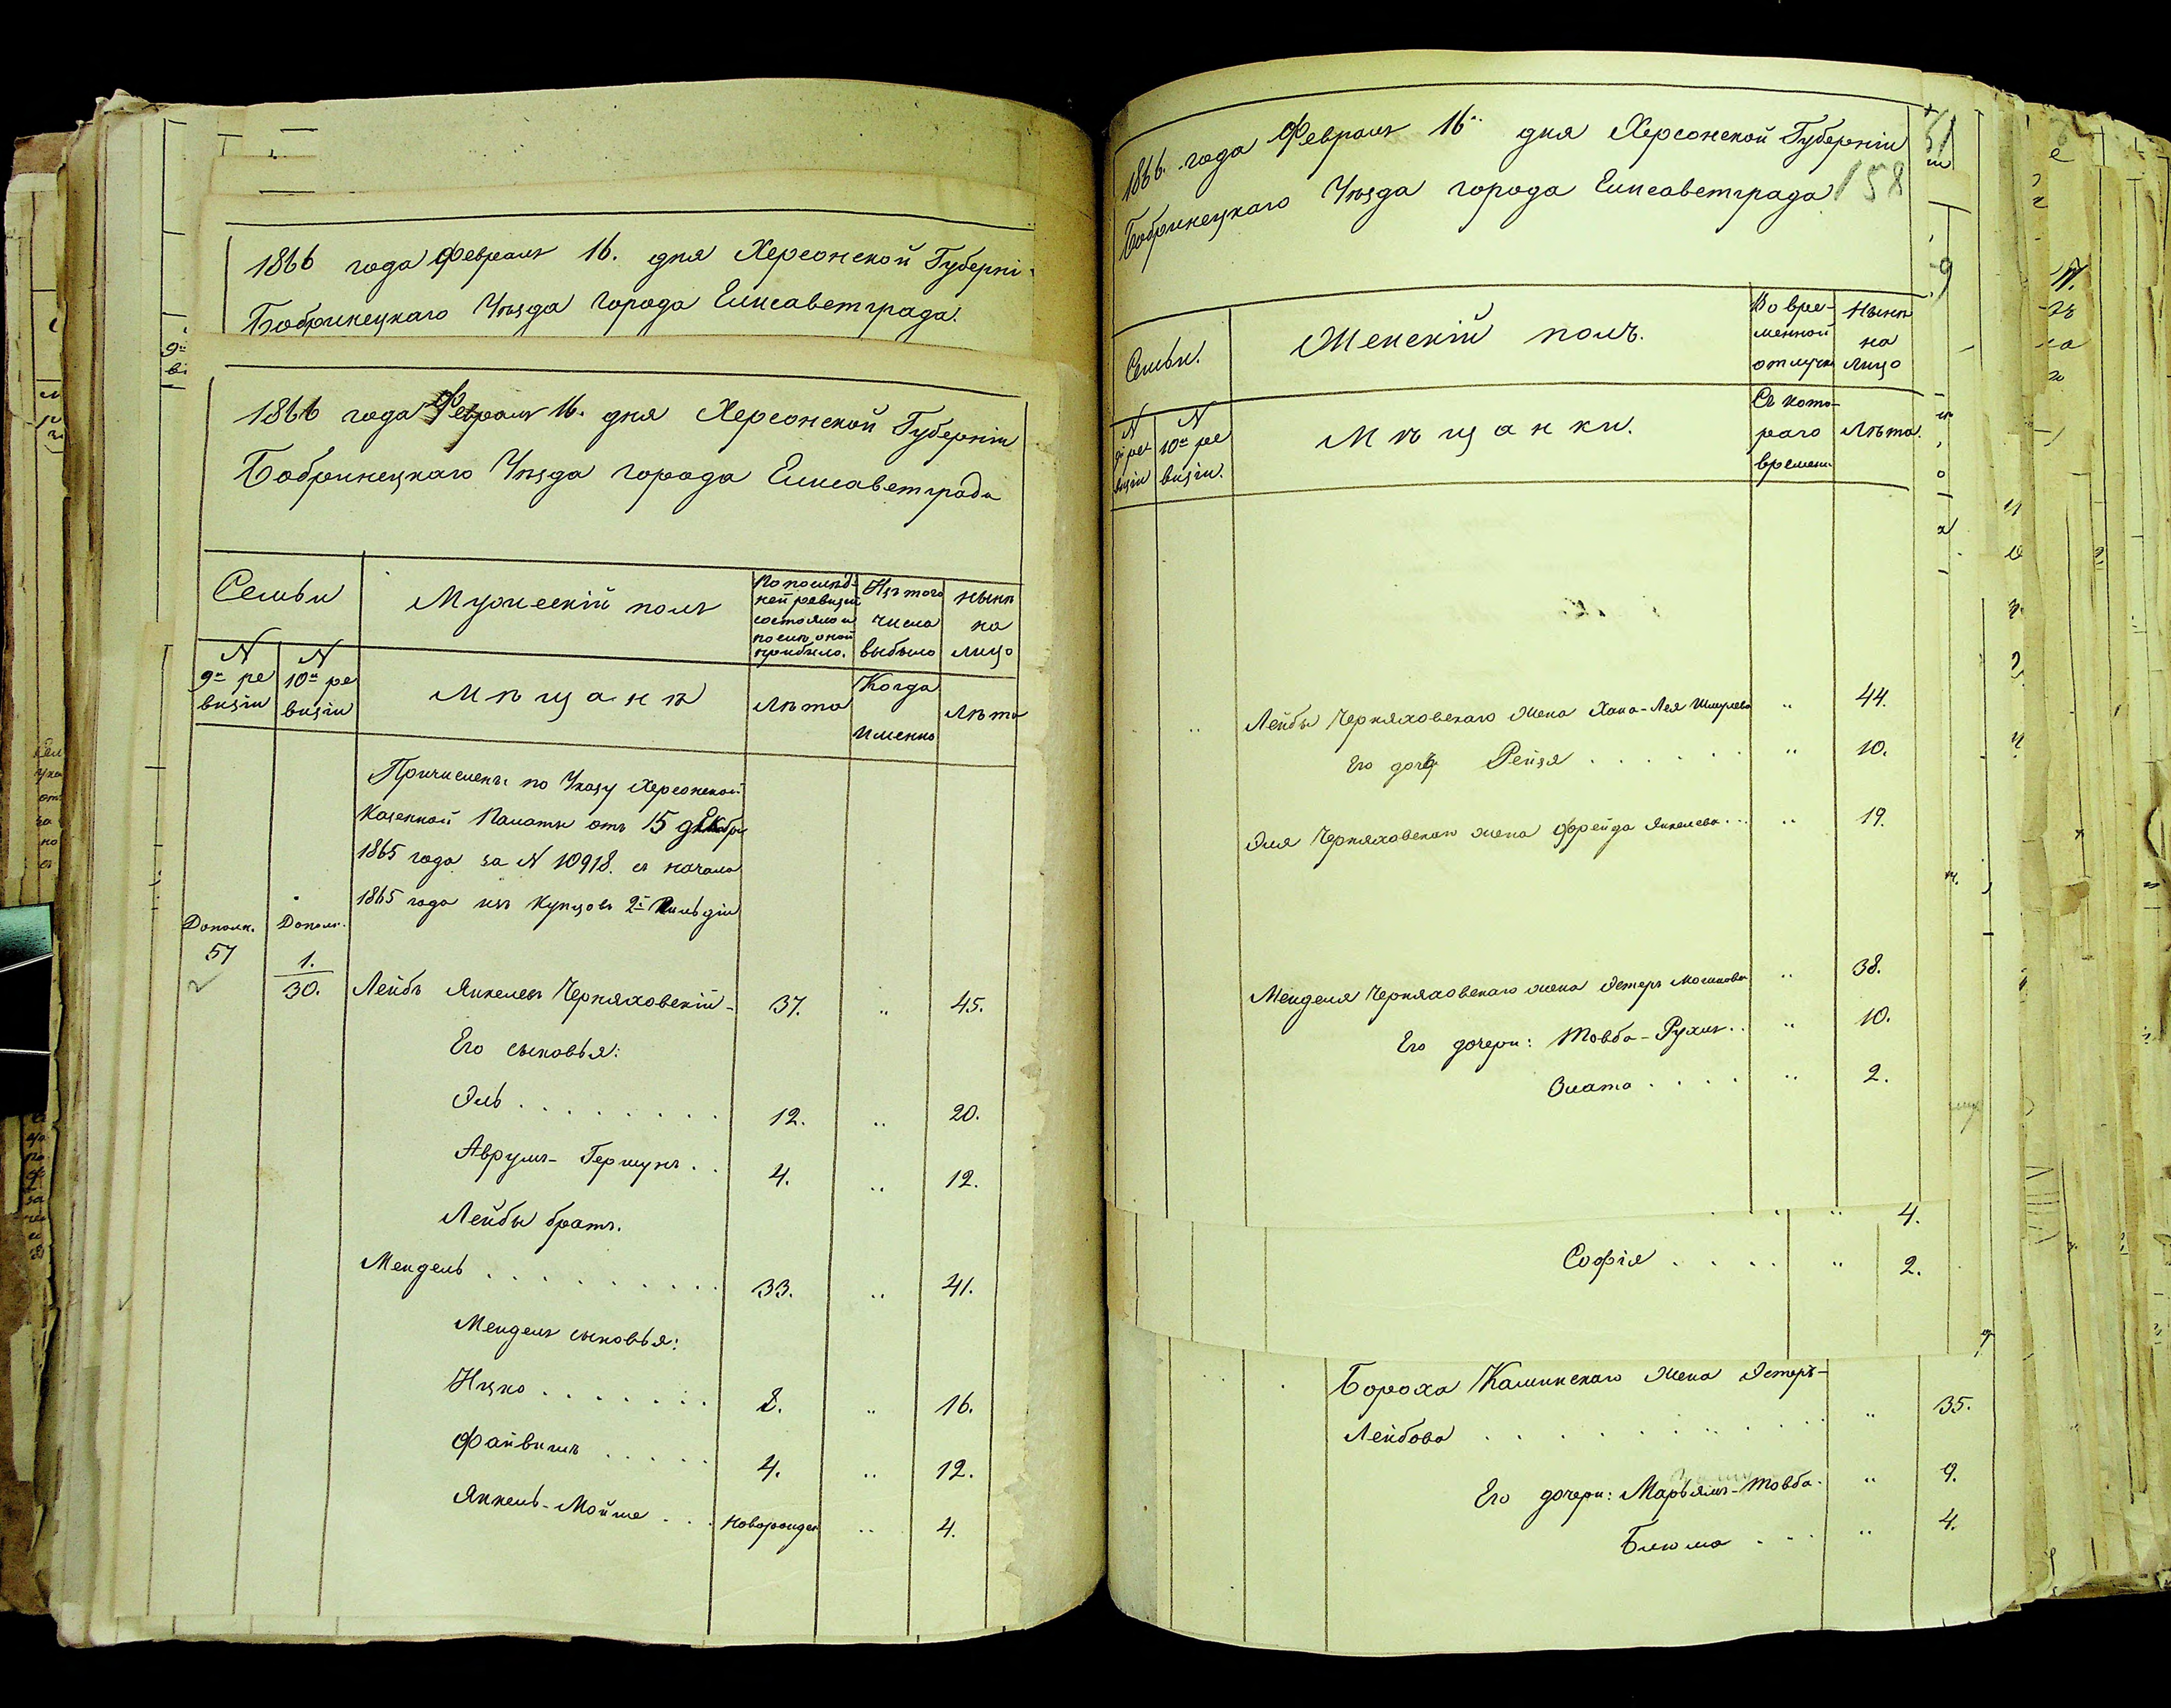 1866 года Февраля 16. дня Херсонской Губерні
Бобринецкаго Уѣзда города Елисаветграда.
1866 года Февраля 16. дня Херсонской Губерніи
Бобринецкаго Уѣзда города Елисаветграда
Семьи
Мужескій полъ
По послѣд-
ней ревизіи
состояло и
послѣ оной
прибыло.
Изъ того
числа
выбыло
Нынѣ
на
лицо
N
9й ре
визіи
N
10й ре
визіи
Мѣщанѣ
Лѣта
Когда
именно
Лѣта
Причислены по Указу Херсонской
Казенной Палаты отъ 15 декабря
1865 года за N 10918. съ начала
1865 года изъ Купцовъ 2й Гильдіи
Дополн. Дополн.
57
1.
30. Лейбъ Янкелевъ Черняховскій - 37. " 45.
Его сыновья:
Эль . . . . . . . . 12. " 20.
Аврумъ-Гершунъ . . 4. " 12.
Лейбы братъ.
Мендель . . . . . . . . . 33. " 41.
Менделя сыновья:
Ицко . . . . . . . 8. " 16.
Файвишъ . . . . . 4. " 12.
Янкель-Мойше . . . новорожден " 4.
1866. года Февраля 16го дня Херсонской Губерніи
Бобринецкаго Уѣзда города Елисаветграда
158
Семьи.
Женскій полъ.
Во вре-
менной
отлучкѣ
Нынѣ
на
лицо
N
9й ре
визіи
N
10й ре
визіи.
Мѣщанки.
Съ кото-
раго
времени
Лѣта.
Лейбы Черняховскаго жена Хана-Лея Шмулева " 44.
Его дочь Рейзя . . . . . . " 10.
Эля Черняховскаго жена Фрейда Янкелева . . . " 19.
Менделя Черняховскаго жена Эстеръ Мошкова " 38.
Его дочери: Товба-Рухля . . " 10.
Злата . . . . " 2.
" 4.
Софія . . . . " 2.
Бороха Калинскаго жена Эстеръ-
Лейбова . . . . . . . " 35.
Его дочери: Марьямъ-Товба . " 9.
Блюма . . . " 4.